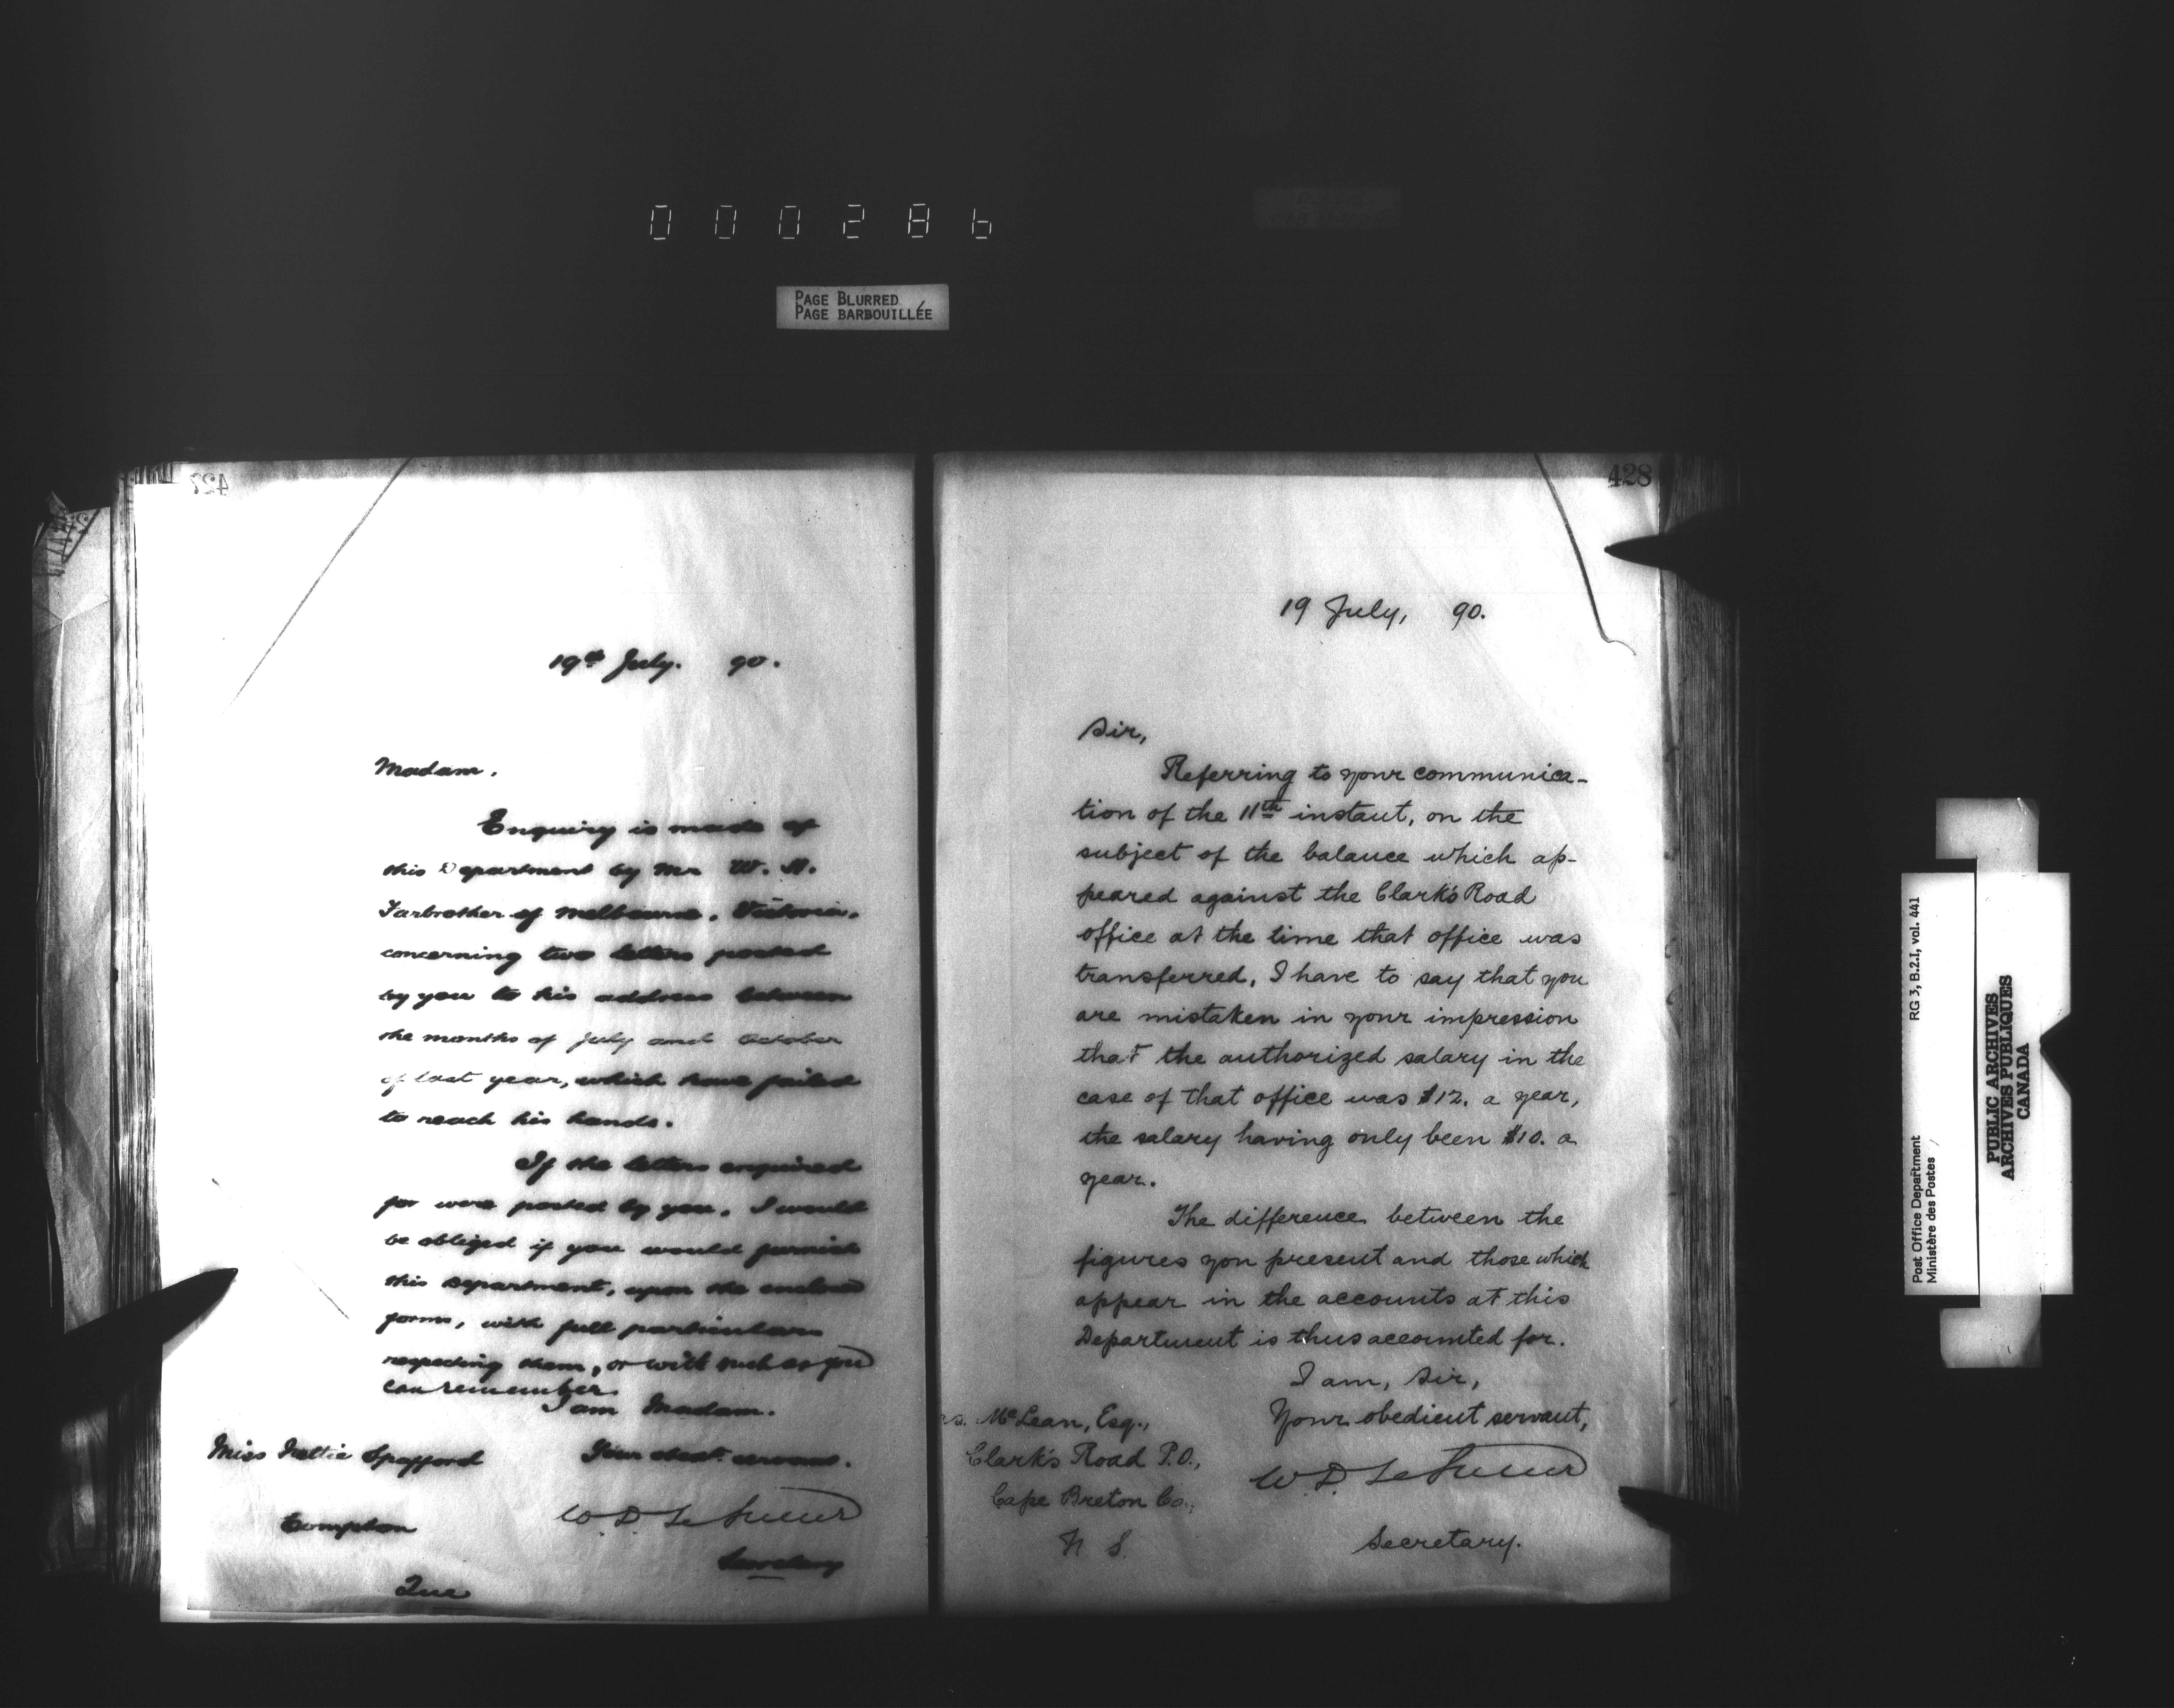 000286
PAGE BLURRED
PAGE BARBOUILLÉE
427
19th July. 90.
Madam.
Enquiry is made of
this Department by Mr W. A.
Farbrother of Melbourne. Victoria.
concerning two letters posted
by you to his address between
the months of July and October
of last year, which have failed
to reach his hands.
If the letters enquired
for were posted by you, I would
be obliged if you would furnish
this department, upon the enclosed
forms, with full particulars
respecting them, or with such as you
can remember.
I am Madam.
Your obedt. servant.
Miss Nettie Spafford
W. D. LeSueur
Compton
Secretary
Que
428
19 July, 90.
Sir,
Referring to your communica-
tion of the 11th instant, on the
subject of the balance which ap-
peared against the Clark's Road
office at the time that office was
transferred, I have to say that you
are mistaken in your impression
that the authorized salary in the
case of that office was $12. a year,
the salary having only been $10. a
year.
The difference between the
figures you present and those which
appear in the accounts at this
Department is thus accounted for.
I am, Sir,
Your obedient servant,
McLean, Esq.,
Clark's Road P.O.,
W. D. LeSueur
Cape Breton Co.,
N S.
Secretary.
Post Office Department
Ministère des Postes
RG 3, B.2.I, vol. 441
PUBLIC ARCHIVES
ARCHIVES PUBLIQUES
CANADA